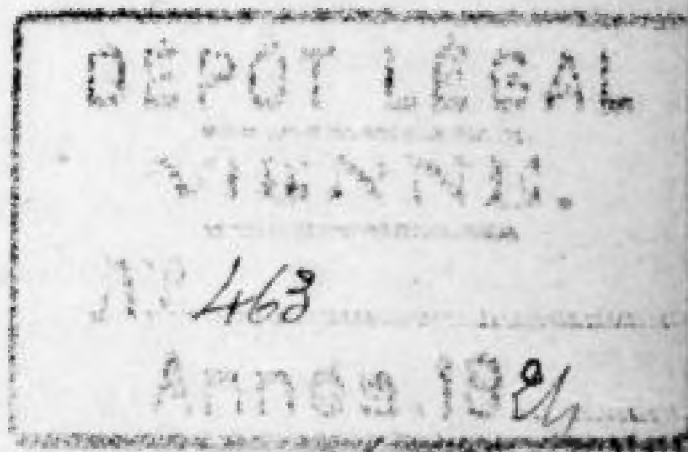 DÉPOT LÉGAL
VIENNE.
No 463
Année 1924